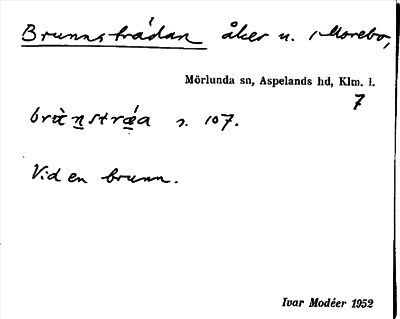 Brunnsträdan åker u. Morebo,
Mörlunda sn, Aspelands hd, Klm. l.
7
s. 107.
Vid en brunn.
Ivar Modéer 1952